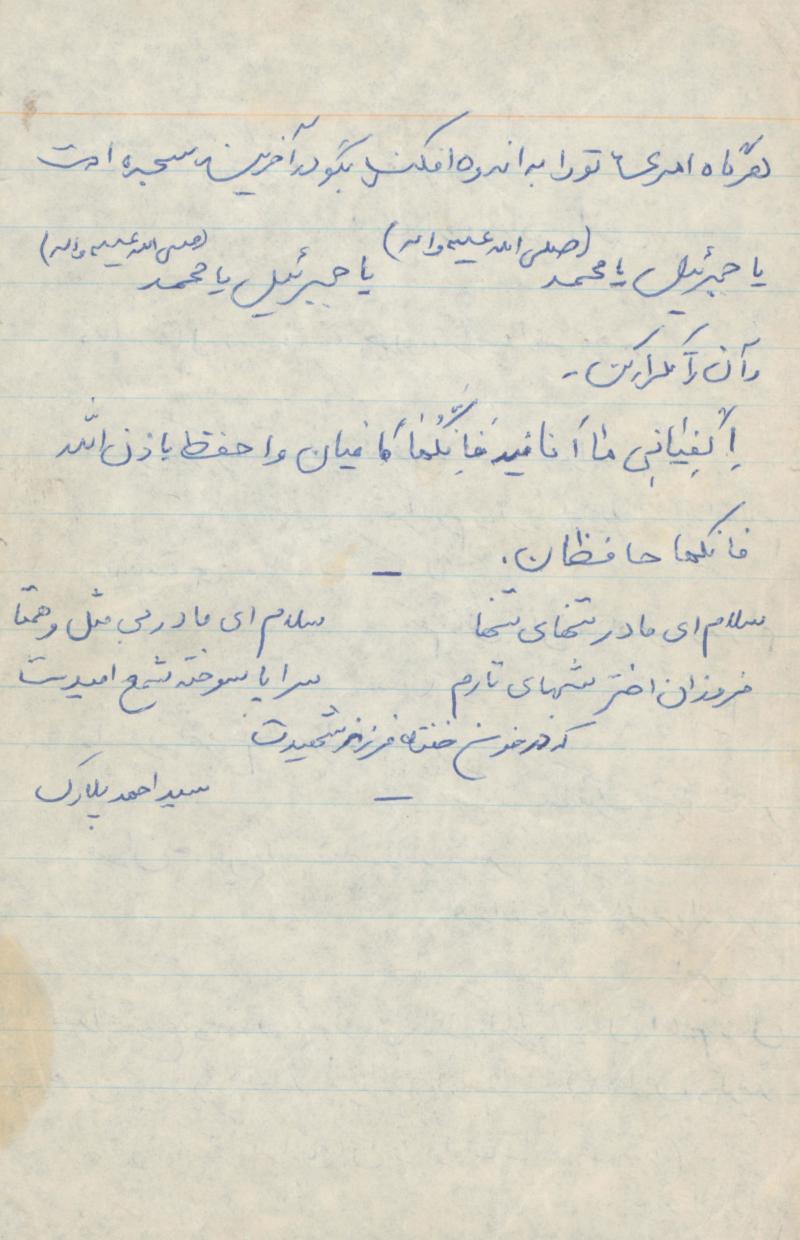 هرگاه امری تو را به اندوه افکند بگو در آخرین سجده ات
یا جبرئیل یا محمد (صلی الله علیه واله) یا جبرئیل یا محمد (صلی الله علیه واله)
و آن را تکرار کن -
اِکْفِیٰانِی مٰا اَنَا فیه فَاِنَّکُمٰا کافیان واحفظ باذن الله
فانکما حافظان.
سلام ای مادر تنهای تنها سلام ای مادر بی مثل و همتا
فروزان اختر شبهای تارم سراپا سوخته شمع امیدت
که در خون خفته فرزند شهیدت
سید احمد پلارک